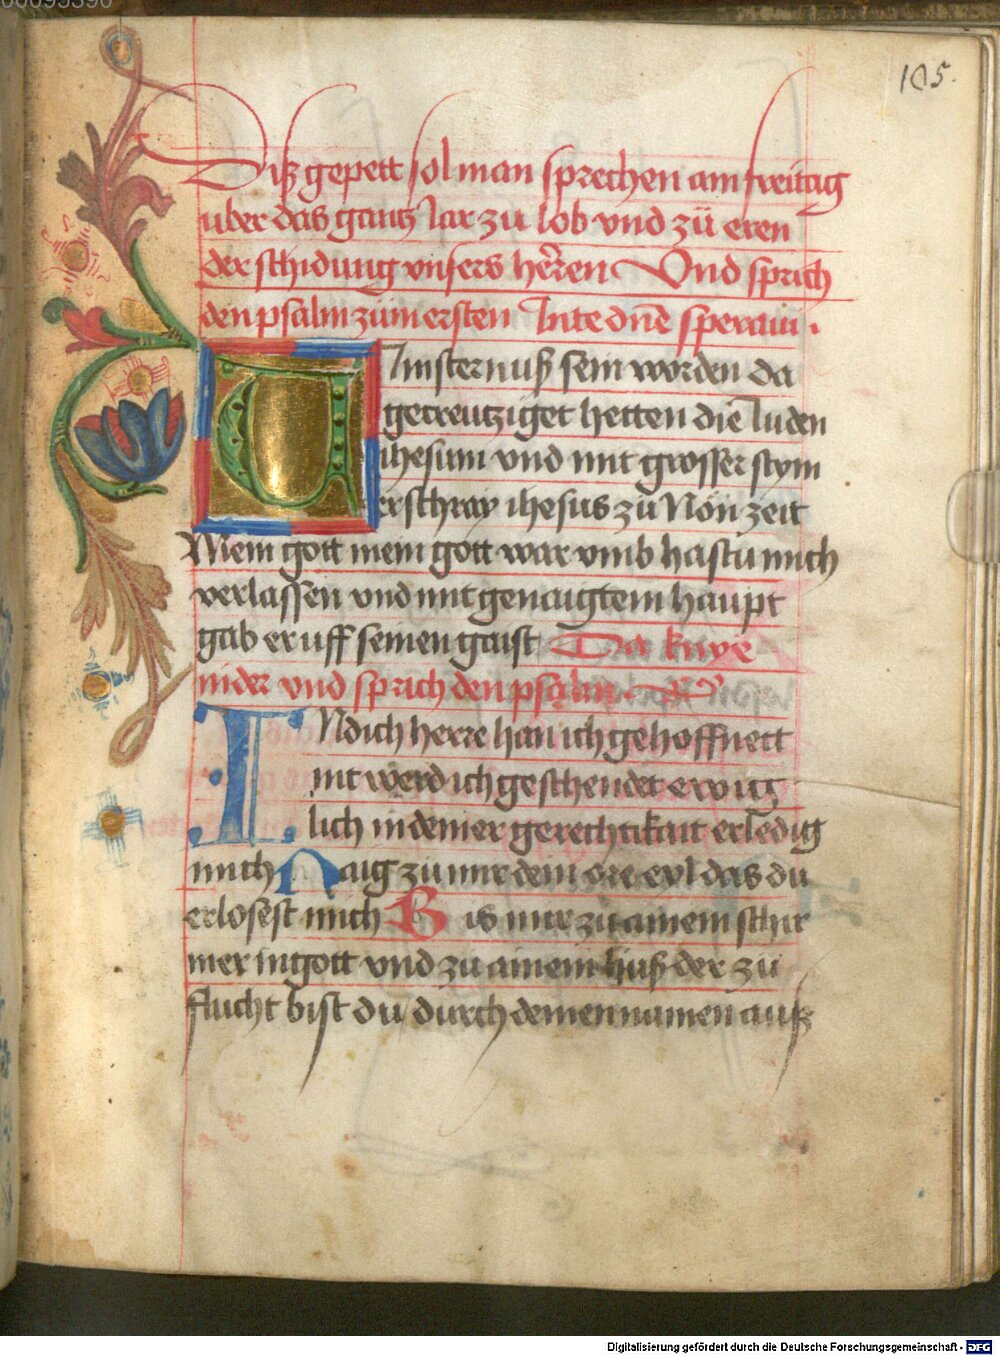 105.
Diß gepett sol man sprechen am freittag
uber das gantz Jar zu lob vnd zů eren
der schidung vnsers herren Vnd sprich
den psalm zům ersten In te dn̄e speraui .
Vinsternuß sein worden da
getreutziget hetten die Juden
ihesum vnd mit grosser stym
erschray ihesus zů Non zeit
Mein gott mein gott war vmb hastu mich
verlassen vnd mit genaigtem haupt
gab er uff seinen gaist Da knye
nider vnd sprich den psalm
IN dich herre han ich gehoffnett
nit werd ich geschendet ewig
lich in deiner gerechtikait erledig
mich Naig zů mir dein ore eyl das du
erlosest mich Bis mir zu ainem schir
mer in gott vnd zů ainem huß der zů
flucht bist du durch deinen namen auß
Digitalisierung gefördert durch die Deutsche Forschungsgemeinschaft - DFG